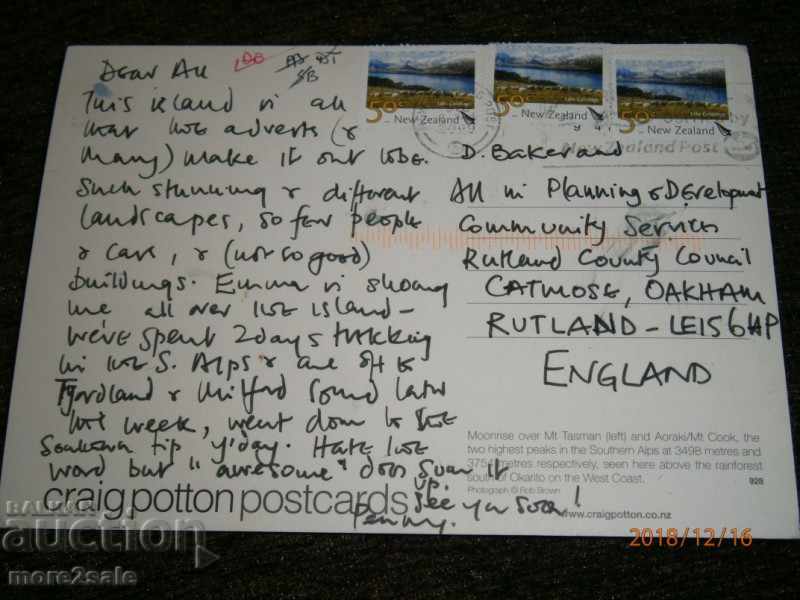 Dear All
This island is all
war the adverts (&
many) make it out to be.
Such stunning & different
landscapes, so few people
& cars, & (not so good)
buildings. Emma is showing
me all over the island -
we've spent 2 days trekking
in the S. Alps & are off to
Fjordland & Milford Sound later
the week, went down to the
Southern tip y'day. Hate the
word but "awesome" does sum it
up. See you soon!
Penny.
50c New Zealand
50c New Zealand
50c New Zealand
New Zealand Post
D. Baker and
All in Planning & Development
Community Services
Rutland County Council
CATMOSE, OAKHAM
RUTLAND - LE15 6HP
ENGLAND
Moonrise over Mt Tasman (left) and Aoraki/Mt Cook, the
two highest peaks in the Southern Alps at 3498 metres and
3754 metres respectively, seen here above the rainforest
south of Okarito on the West Coast.
928
Photograph © Rob Brown
craig potton postcards
www.craigpotton.co.nz
BALKAN
auction
more2sale
2018/12/16